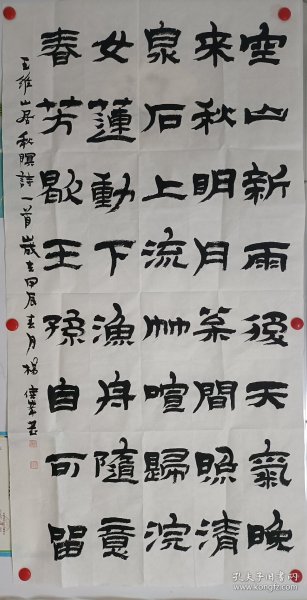 空山新雨後天氣晚
来秋明月松間照清
泉石上流竹喧歸浣
女蓮動下漁舟隨意
春芳歇王孫自可留
王維山居秋暝詩一首歲在甲辰月楊書
孔夫子旧书网